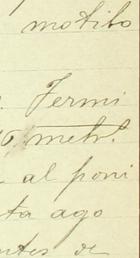 motibo
. Fermi
6, metr.
al poni
ta ago
ntes de